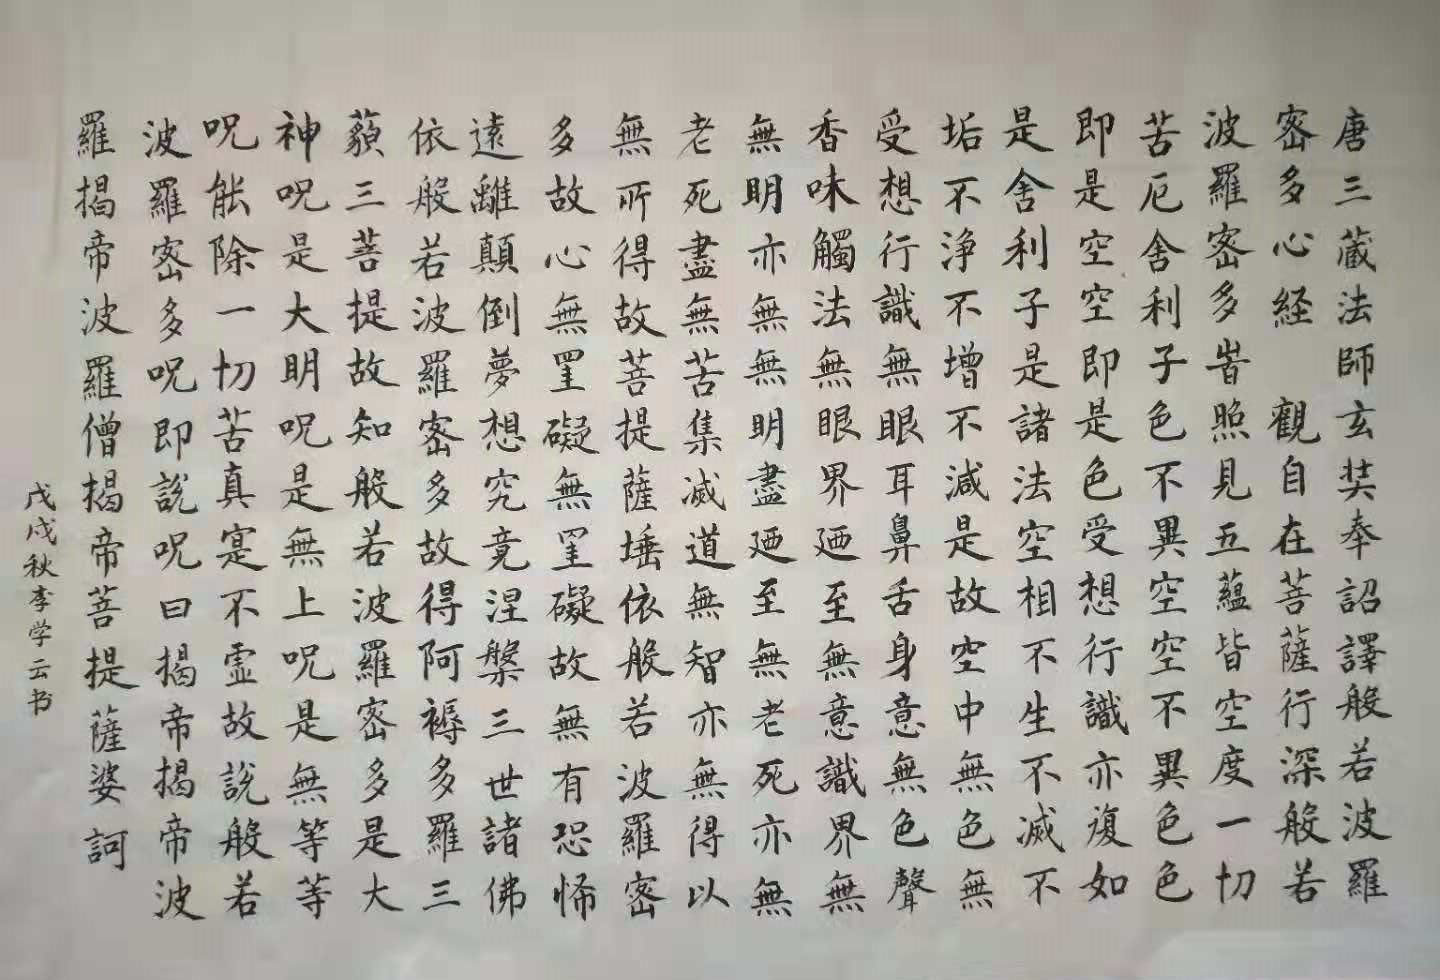 唐三蔵法師玄奘奉詔譯般若波羅
密多心経 觀自在菩薩行深般若
波羅密多旹照見五蘊皆空度一切
苦厄舍利子色不異空空不異色色
即是空空即是色受想行識亦復如
是舍利子是諸法空相不生不滅不
垢不浄不增不減是故空中無色無
受想行識無眼耳鼻舌身意無色聲
香味觸法無眼界廼至無意識界無
無明亦無無明盡廼至無老死亦無
老死盡無苦集滅道無智亦無得以
無所得故菩提薩埵依般若波羅密
多故心無罣礙無罣礙故無有恐怖
遠離顛倒夢想究竟涅槃三世諸佛
依般若波羅密多故得阿褥多羅三
藐三菩提故知般若波羅密多是大
神呪是大明呪是無上呪是無等等
呪能除一切苦真寔不虛故說般若
波羅密多呪即說呪曰揭帝揭帝波
羅揭帝波羅僧揭帝菩提薩婆訶
戊戌秋李学云书